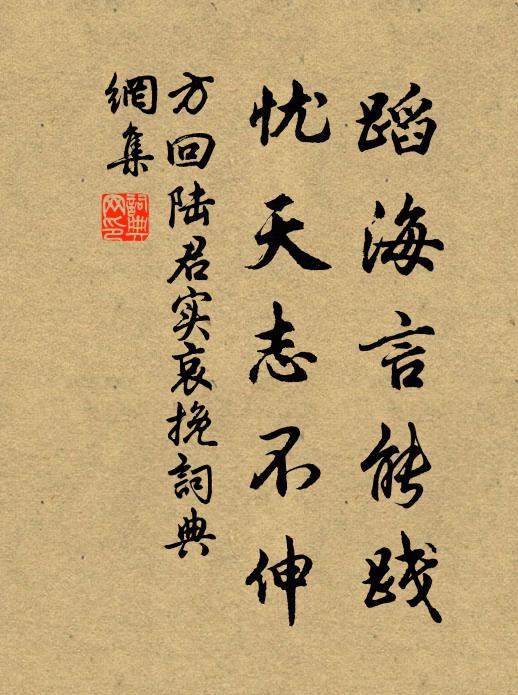 蹈海言能践
忧天志不伸
方回陆君实哀挽詞典
網集
詞典
网印